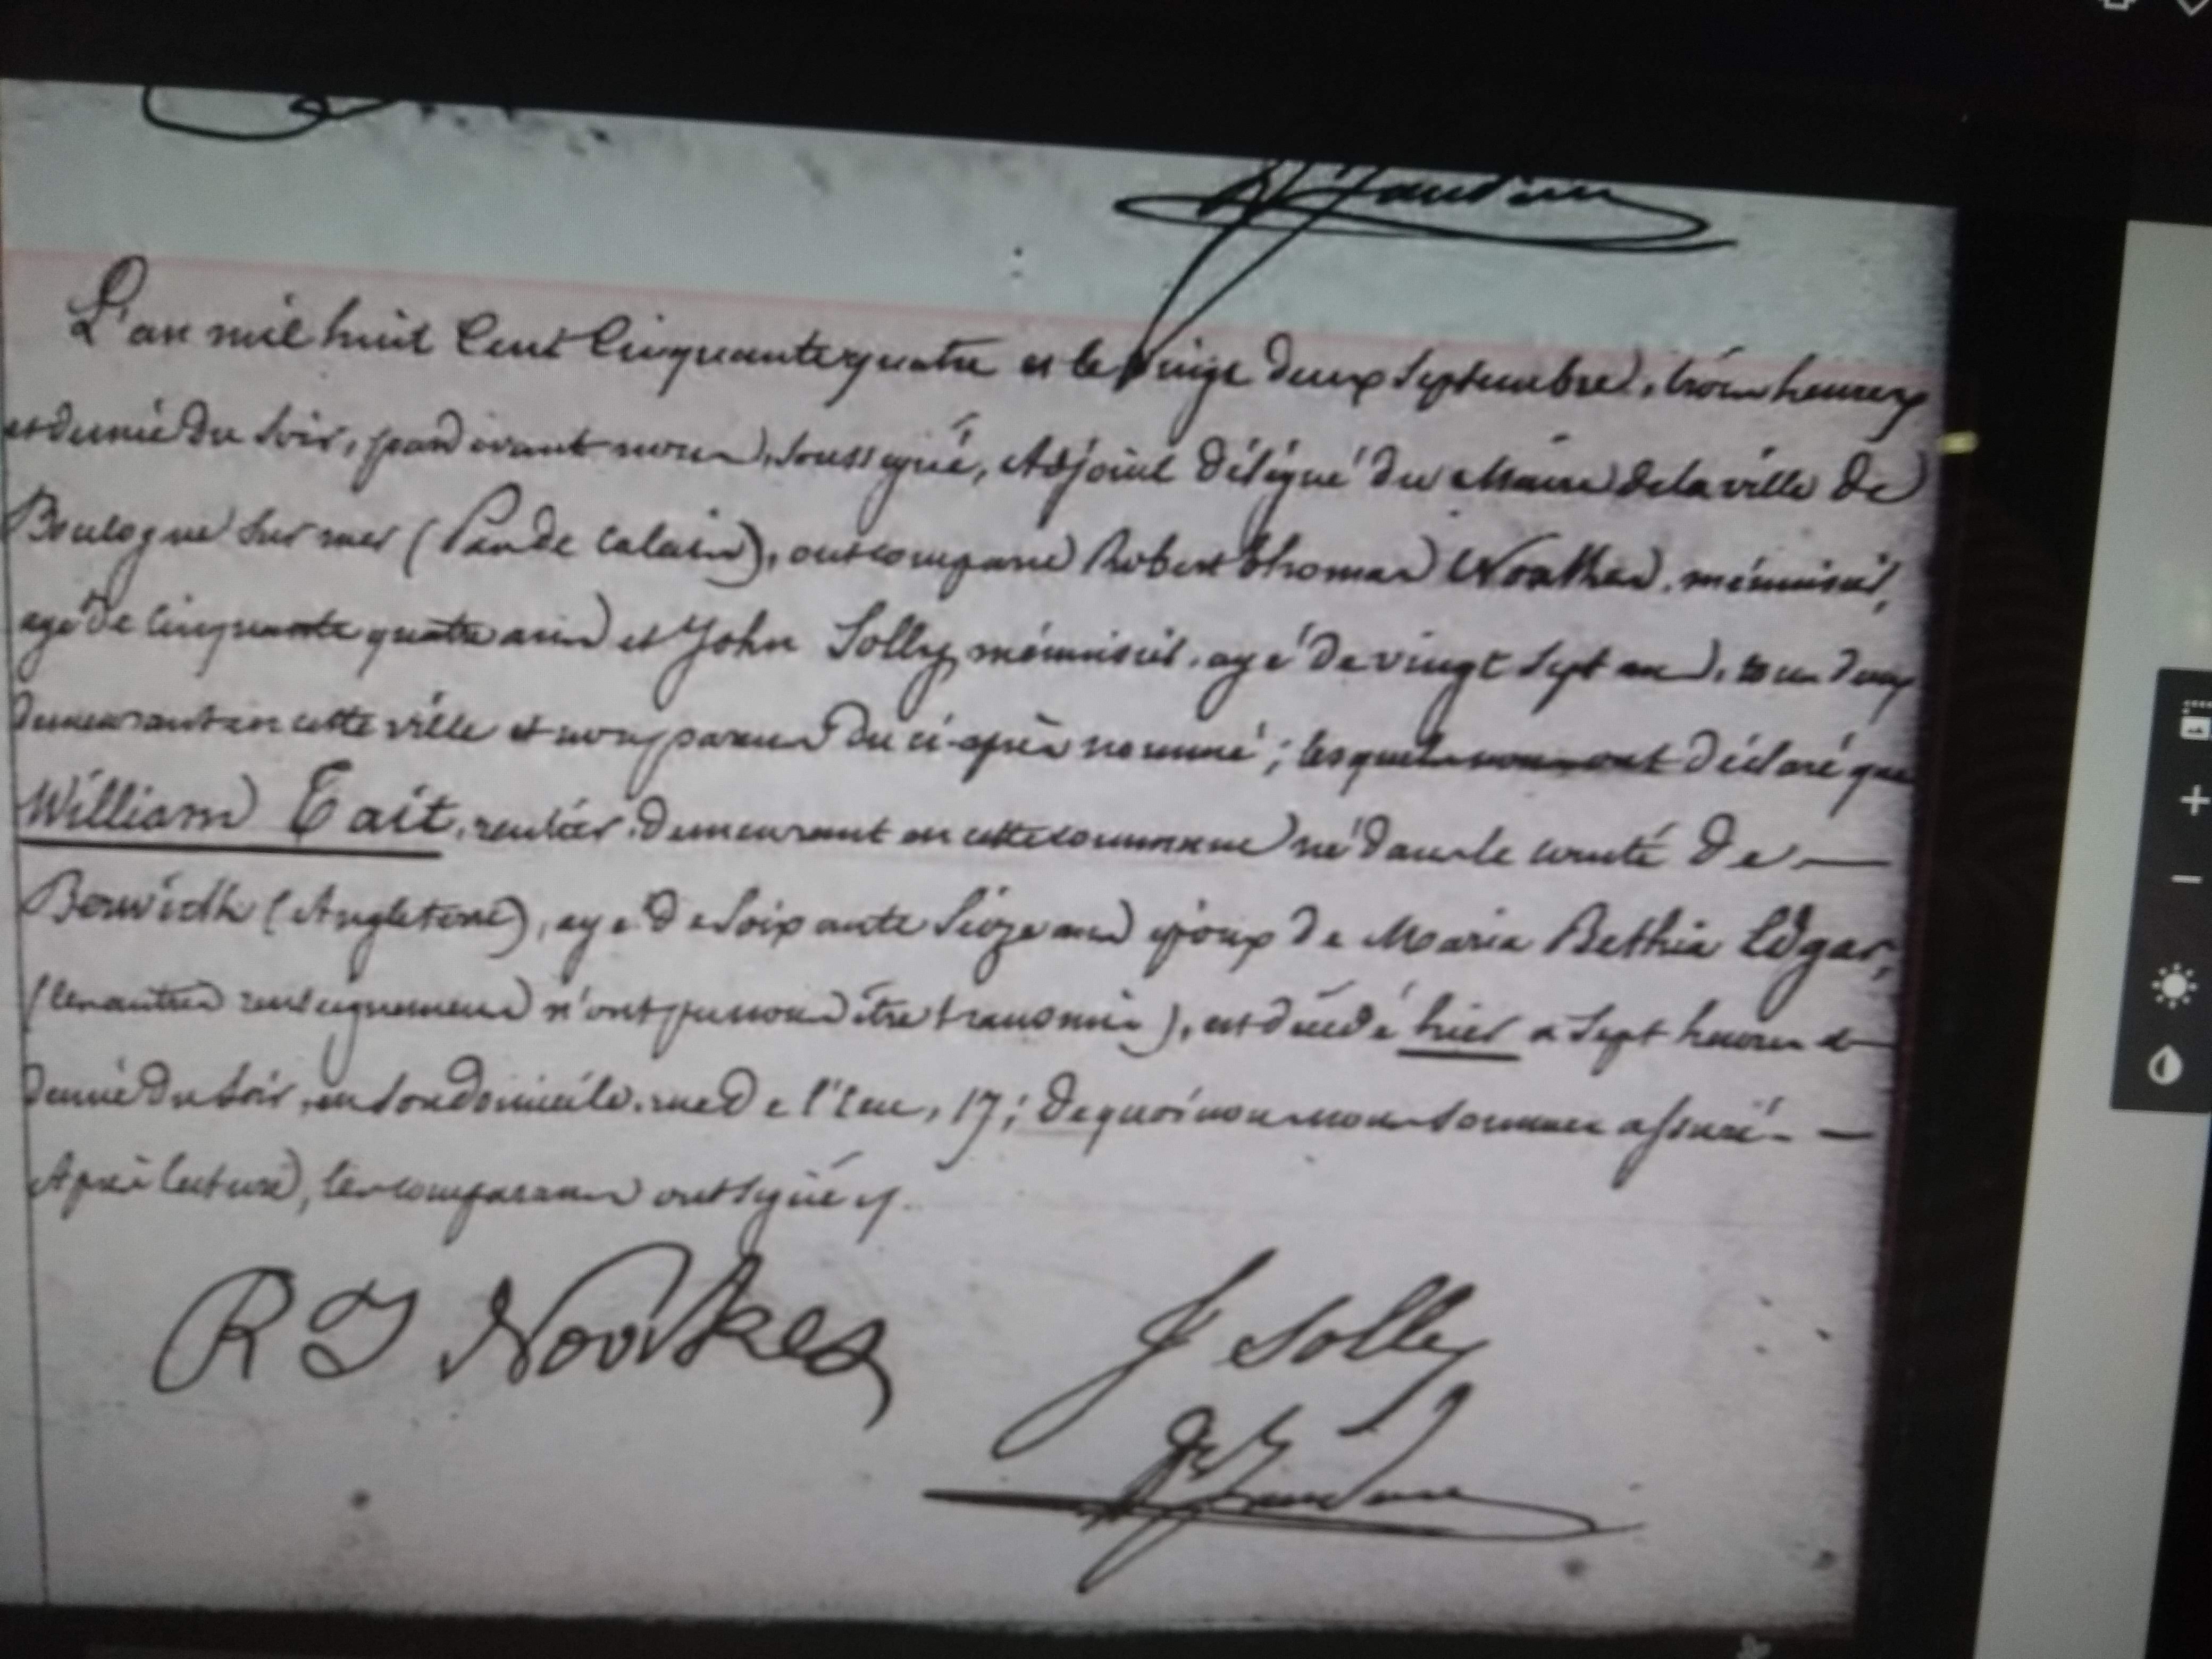 L'an mil huit Cent Cinquante quatre et le Vingt deux Septembre, trois heures
et demie du Soir, par devant nous, soussigné, Adjoint délégué du Maire de la ville de
Boulogne Sur mer (Pas de Calais), ont comparu Robert Thomas Noakes, menuisier,
agé de Cinquante quatre ans et John Solly, menuisier, agé de vingt Sept ans, tous deux
demeurant en cette ville et non parens du ci-après nommé; lesquels nous ont déclaré que
William Tait, rentier, demeurant en cette commune né dans le comté de
Berwick (Angleterre), agé de Soixante Seize ans époux de Maria Bethia Edgar,
(les autres renseignemens n'ont pu nous être transmis), est décédé hier a Sept heures et
demie du Soir, en Son domicile, rue de l'Ecu, 17; de quoi nous nous sommes assuré.
Après lecture, les comparans ont signé.
R T Noakes
J Solly